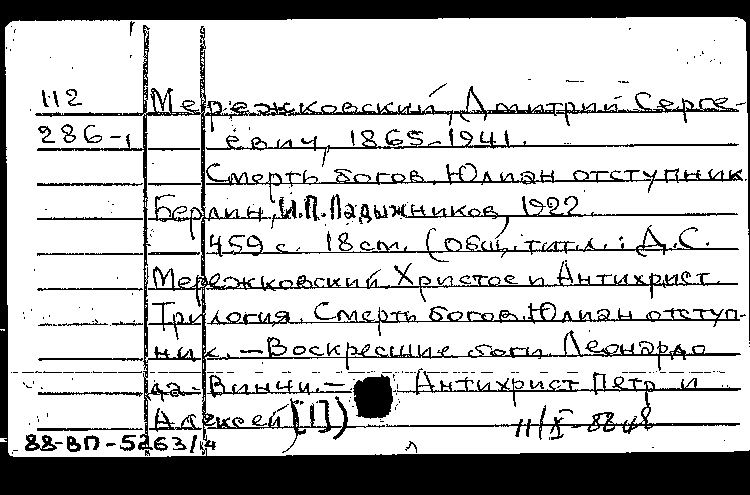 112 Мережковский, Дмитрий Серге-
286-1 евич, 1865-1941.
Смерть богов. Юлиан отступник
Берлин, И.П. Ладыжников, 1922.
459 с. 18 см. (Общ. титл.: Д.С.
Мережковский. Христос и Антихрист.
Трилогия. Смерть богов. Юлиан отступ-
ник. – Воскресшие боги. Леонардо
да-Винчи. – Антихрист Петр и
Алексей [I])
11/X-88
88-ВП-5263/14